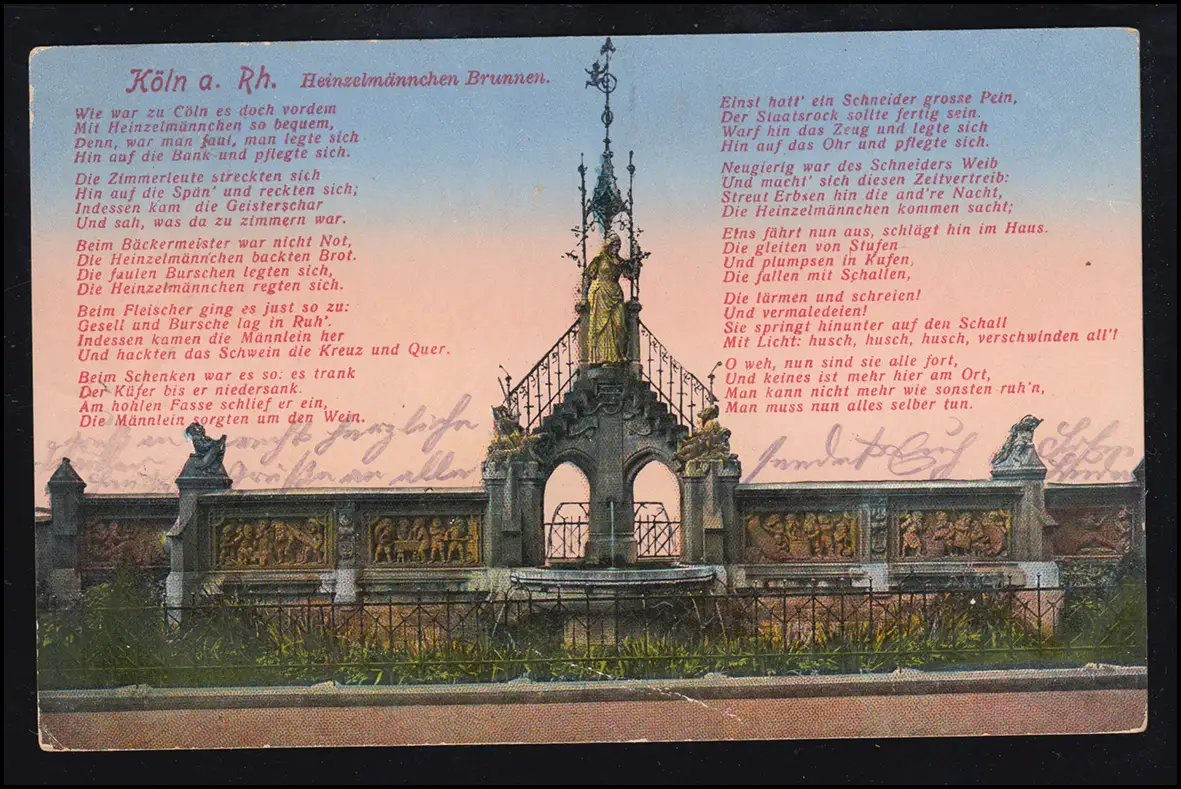 Köln a. Rh. Heinzelmännchen Brunnen.
Wie war zu Cöln es doch vordem
Mit Heinzelmännchen so bequem,
Denn, war man faul, man legte sich
Hin auf die Bank und pflegte sich.
Die Zimmerleute streckten sich
Hin auf die Spän' und reckten sich;
Indessen kam die Geisterschar
Und sah, was da zu zimmern war.
Beim Bäckermeister war nicht Not,
Die Heinzelmännchen backten Brot.
Die faulen Burschen legten sich,
Die Heinzelmännchen regten sich.
Beim Fleischer ging es just so zu:
Gesell und Bursche lag in Ruh'.
Indessen kamen die Männlein her
Und hackten das Schwein die Kreuz und Quer.
Beim Schenken war es so: es trank
Der Küfer bis er niedersank.
Am hohlen Fasse schlief er ein,
Die Männlein sorgten um den Wein.
Einst hatt' ein Schneider grosse Pein,
Der Staatsrock sollte fertig sein.
Warf hin das Zeug und legte sich
Hin auf das Ohr und pflegte sich.
Neugierig war des Schneiders Weib
Und macht' sich diesen Zeitvertreib:
Streut Erbsen hin die and're Nacht,
Die Heinzelmännchen kommen sacht;
Eins fährt nun aus, schlägt hin im Haus.
Die gleiten von Stufen
Und plumpsen in Kufen,
Die fallen mit Schallen,
Die lärmen und schreien!
Und vermaledeien!
Sie springt hinunter auf den Schall
Mit Licht: husch, husch, husch, verschwinden all'!
O weh, nun sind sie alle fort,
Und keines ist mehr hier am Ort,
Man kann nicht mehr wie sonsten ruh'n,
Man muss nun alles selber tun.
recht herzliche
Grüße an alle
sendet Euch